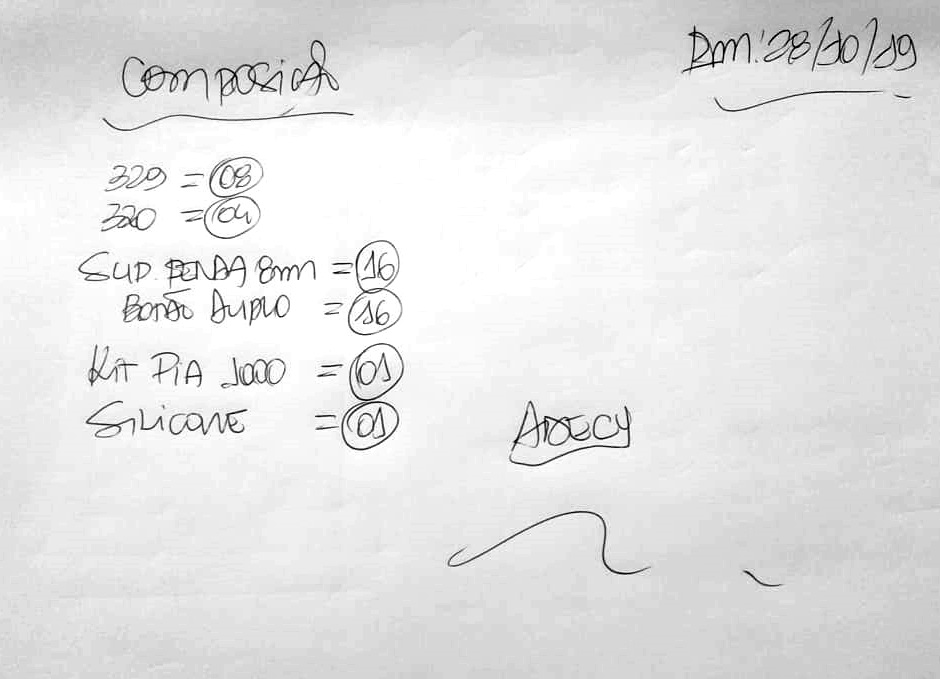 Composição
Dm: 28/10/19
329 = 08
320 = 04
Sup. FENDA 8mm = 16
BOTÃO DUPLO = 16
Kit PiA 1000 = 01
SiLiCONE = 01
ADECY